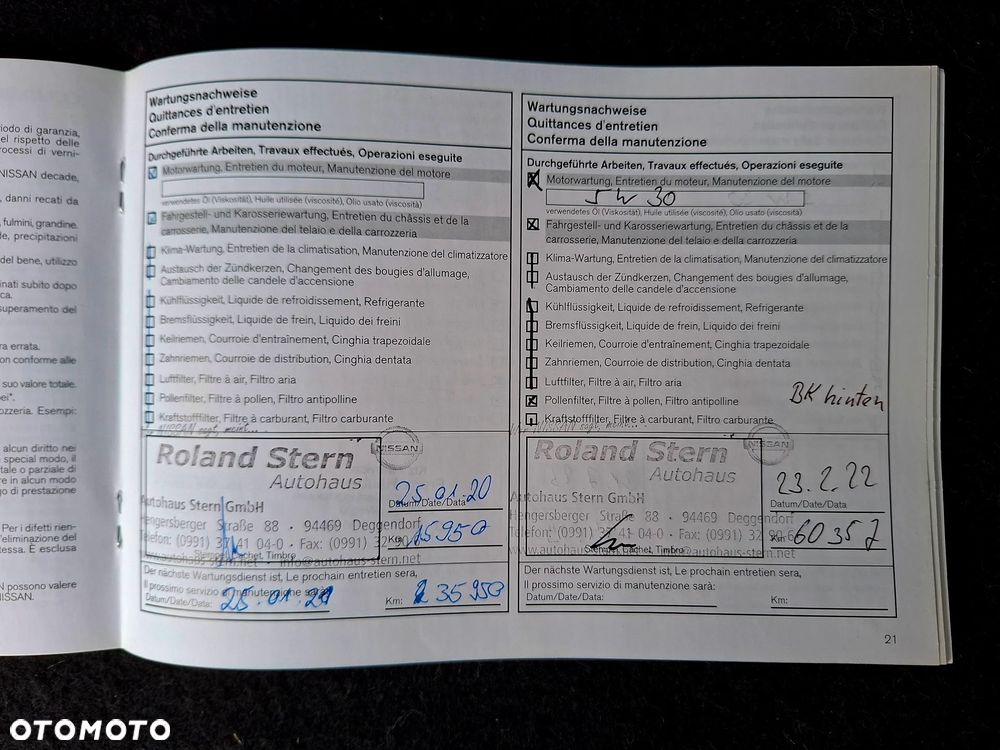 riodo di garanzia,
el rispetto delle
rocessi di verni-
NISSAN decade,
, danni recati da
fulmini, grandine.
de, precipitazioni
del bene, utilizzo
inati subito dopo
ca.
superamento dei
ra errata.
on conforme alle
suo valore totale.
ei".
ozzeria. Esempi:
alcun diritto nei
special modo, il
tale o parziale di
re in alcun modo
go di prestazione
Per i difetti rien-
'eliminazione del
tessa. È esclusa
N possono valere
NISSAN.
Wartungsnachweise
Quittances d'entretien
Conferma della manutenzione
Durchgeführte Arbeiten, Travaux effectués, Operazioni eseguite
Motorwartung, Entretien du moteur, Manutenzione del motore
verwendetes Öl (Viskosität), Huile utilisée (viscosité), Olio usato (viscosità)
Fahrgestell- und Karosseriewartung, Entretien du châssis et de la
carrosserie, Manutenzione del telaio e della carrozzeria
Klima-Wartung, Entretien de la climatisation, Manutenzione del climatizzatore
Austausch der Zündkerzen, Changement des bougies d'allumage,
Cambiamento delle candele d'accensione
Kühlflüssigkeit, Liquide de refroidissement, Refrigerante
Bremsflüssigkeit, Liquide de frein, Liquido dei freini
Keilriemen, Courroie d'entraînement, Cinghia trapezoidale
Zahnriemen, Courroie de distribution, Cinghia dentata
Luftfilter, Filtre à air, Filtro aria
Pollenfilter, Filtre à pollen, Filtro antipolline
Kraftstofffilter, Filtre à carburant, Filtro carburante
NISSAN sagt, meint...
NISSAN
Roland Stern
Autohaus
Autohaus Stern GmbH
Hengersberger Straße 88 · 94469 Deggendorf
Telefon: (0991) 37 41 04-0 · Fax: (0991)
www.autohaus-stern.net · info@autohaus-stern.net
Stempel, Cachet, Timbro
25.01.20
Datum/Date/Data
Km 15950
Der nächste Wartungsdienst ist, Le prochain entretien sera,
Il prossimo servizio di manutenzione sarà:
Datum/Date/Data: 25.01.21 Km: 35950
Wartungsnachweise
Quittances d'entretien
Conferma della manutenzione
Durchgeführte Arbeiten, Travaux effectués, Operazioni eseguite
Motorwartung, Entretien du moteur, Manutenzione del motore
5W30
verwendetes Öl (Viskosität), Huile utilisée (viscosité), Olio usato (viscosità)
Fahrgestell- und Karosseriewartung, Entretien du châssis et de la
carrosserie, Manutenzione del telaio e della carrozzeria
Klima-Wartung, Entretien de la climatisation, Manutenzione del climatizzatore
Austausch der Zündkerzen, Changement des bougies d'allumage,
Cambiamento delle candele d'accensione
Kühlflüssigkeit, Liquide de refroidissement, Refrigerante
Bremsflüssigkeit, Liquide de frein, Liquido dei freini
Keilriemen, Courroie d'entraînement, Cinghia trapezoidale
Zahnriemen, Courroie de distribution, Cinghia dentata
Luftfilter, Filtre à air, Filtro aria
Pollenfilter, Filtre à pollen, Filtro antipolline
BK hinten
Kraftstofffilter, Filtre à carburant, Filtro carburante
NISSAN sagt, meint...
NISSAN
Roland Stern
Autohaus
Autohaus Stern GmbH
Hengersberger Straße 88 · 94469 Deggendorf
Telefon: (0991) 37 41 04-0 · Fax: (0991)
www.autohaus-stern.net
Stempel, Cachet, Timbro
23.2.22
Datum/Date/Data
Km 60357
Der nächste Wartungsdienst ist, Le prochain entretien sera,
Il prossimo servizio di manutenzione sarà:
Datum/Date/Data: Km:
21
OTOMOTO